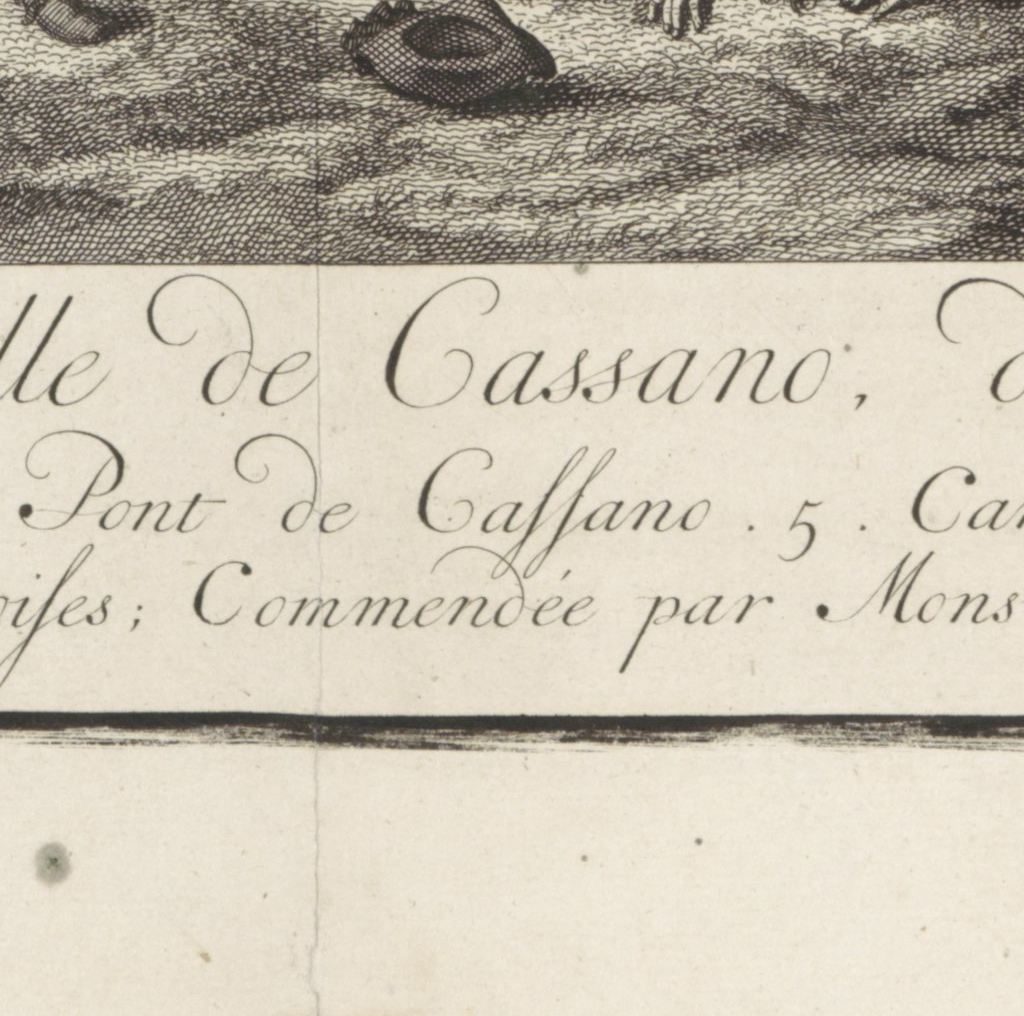 lle de Cassano, d
Pont de Caſſano . 5 . Car
oiſes; Commendée par Mons